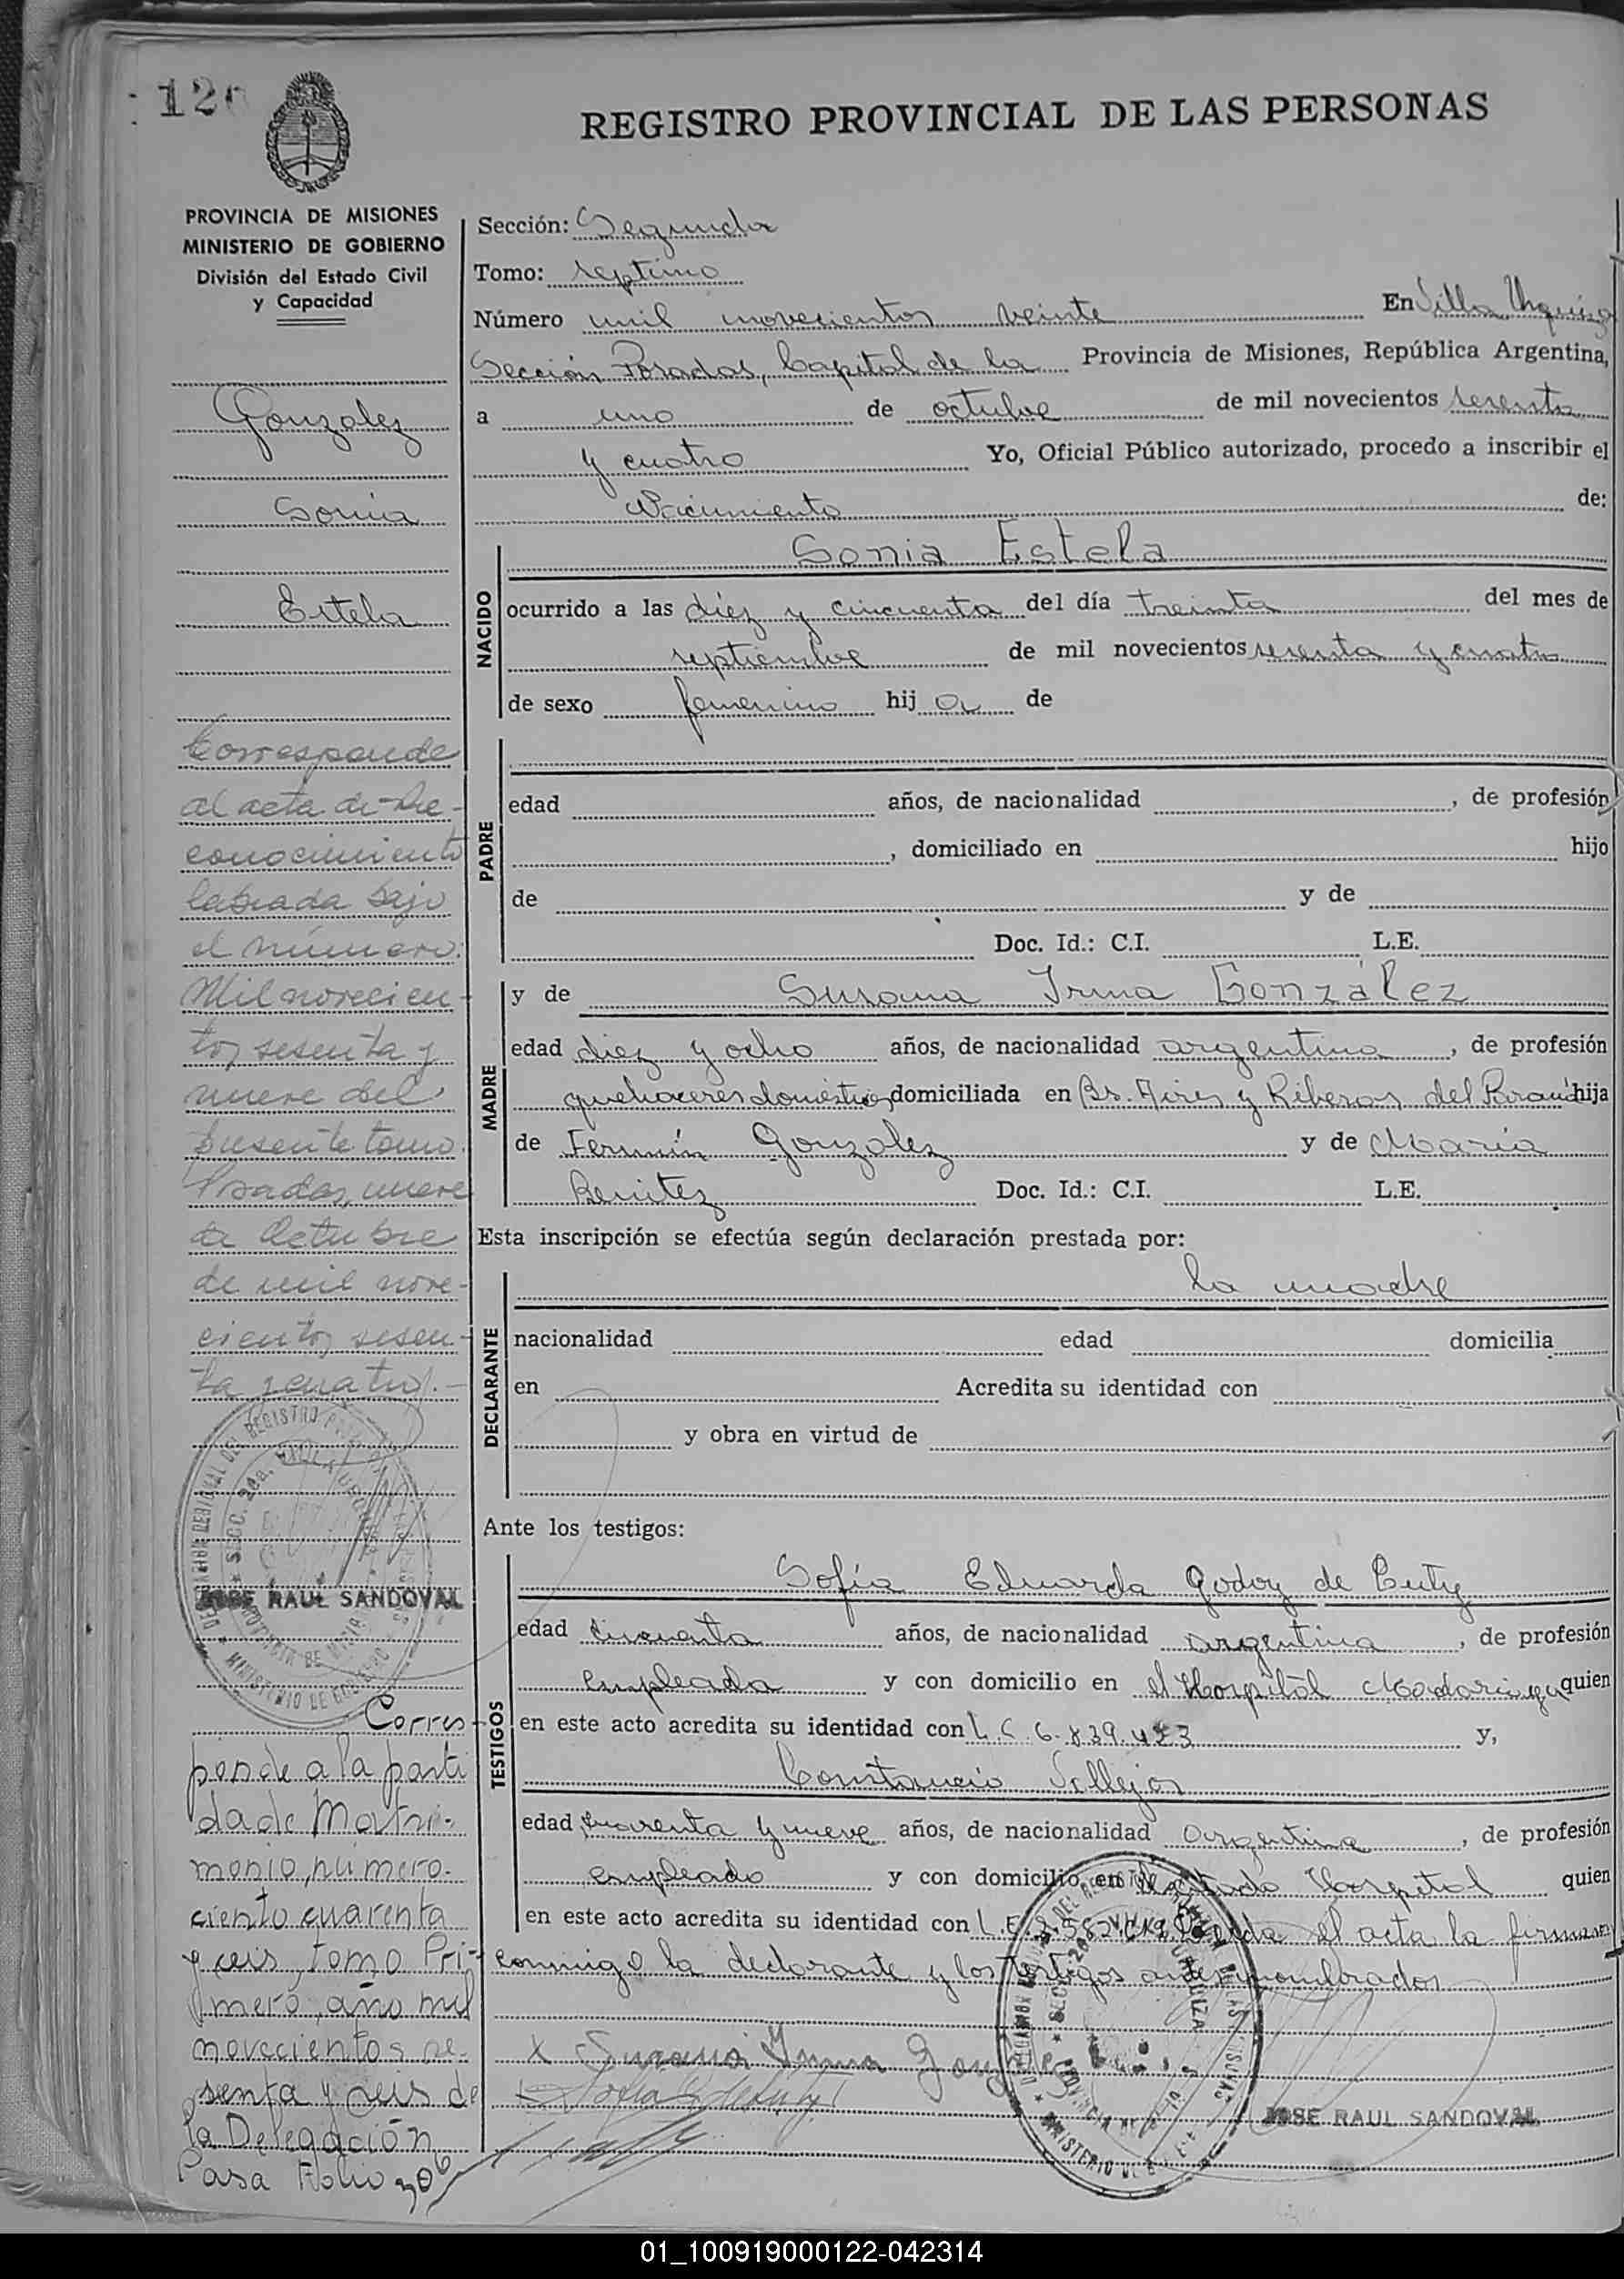 120
REGISTRO PROVINCIAL DE LAS PERSONAS
PROVINCIA DE MISIONES
MINISTERIO DE GOBIERNO
División del Estado Civil
y Capacidad
Gonzalez
Sonia
Estela
Corresponde
al acta de Re-
conocimiento
labrada bajo
el número:
Mil novecien-
tos sesenta y
nueve del
presente tomo.
Posadas, nueve
de Octubre
de mil nove-
cientos sesen-
ta y cuatro.-
JOSE RAUL SANDOVAL
Corres-
ponde a la parti
da de Matri-
monio, número
ciento cuarenta
y seis, tomo Pri-
mero, año mil
novecientos se-
senta y seis de
la Delegación
Pasa Folio 306
Sección: Segunda
Tomo: septimo
Número mil novecientos veinte En Villa Urquiza
Sección Posadas, Capital de la Provincia de Misiones, República Argentina,
a uno de octubre de mil novecientos sesenta
y cuatro Yo, Oficial Público autorizado, procedo a inscribir el
Nacimiento de:
NACIDO
Sonia Estela
ocurrido a las diez y cincuenta del día treinta del mes de
septiembre de mil novecientos sesenta y cuatro
de sexo femenino hija de
PADRE
edad años, de nacionalidad , de profesión
, domiciliado en hijo
de y de
Doc. Id.: C.I. L.E.
MADRE
y de Susana Irma González
edad diez y ocho años, de nacionalidad argentina , de profesión
quehaceres domésticos domiciliada en Bs. Aires y Riberas del Paraná hija
de Fermín Gonzalez y de María
Benitez Doc. Id.: C.I. L.E.
Esta inscripción se efectúa según declaración prestada por:
DECLARANTE
la madre
nacionalidad edad domicilia
en Acredita su identidad con
y obra en virtud de
Ante los testigos:
TESTIGOS
Sofía Eduarda Godoy de
edad cincuenta años, de nacionalidad argentina , de profesión
empleada y con domicilio en el Hospital Madariaga quien
en este acto acredita su identidad con L.C. y,
Constancio Vallejos
edad cuarenta y nueve años, de nacionalidad argentina , de profesión
empleado y con domicilio en el citado Hospital quien
en este acto acredita su identidad con L.E. Leída el acta la firman
conmigo la declarante y los testigos antes nombrados
x Susana Irma Gonzalez
JOSE RAUL SANDOVAL
01_100919000122-042314